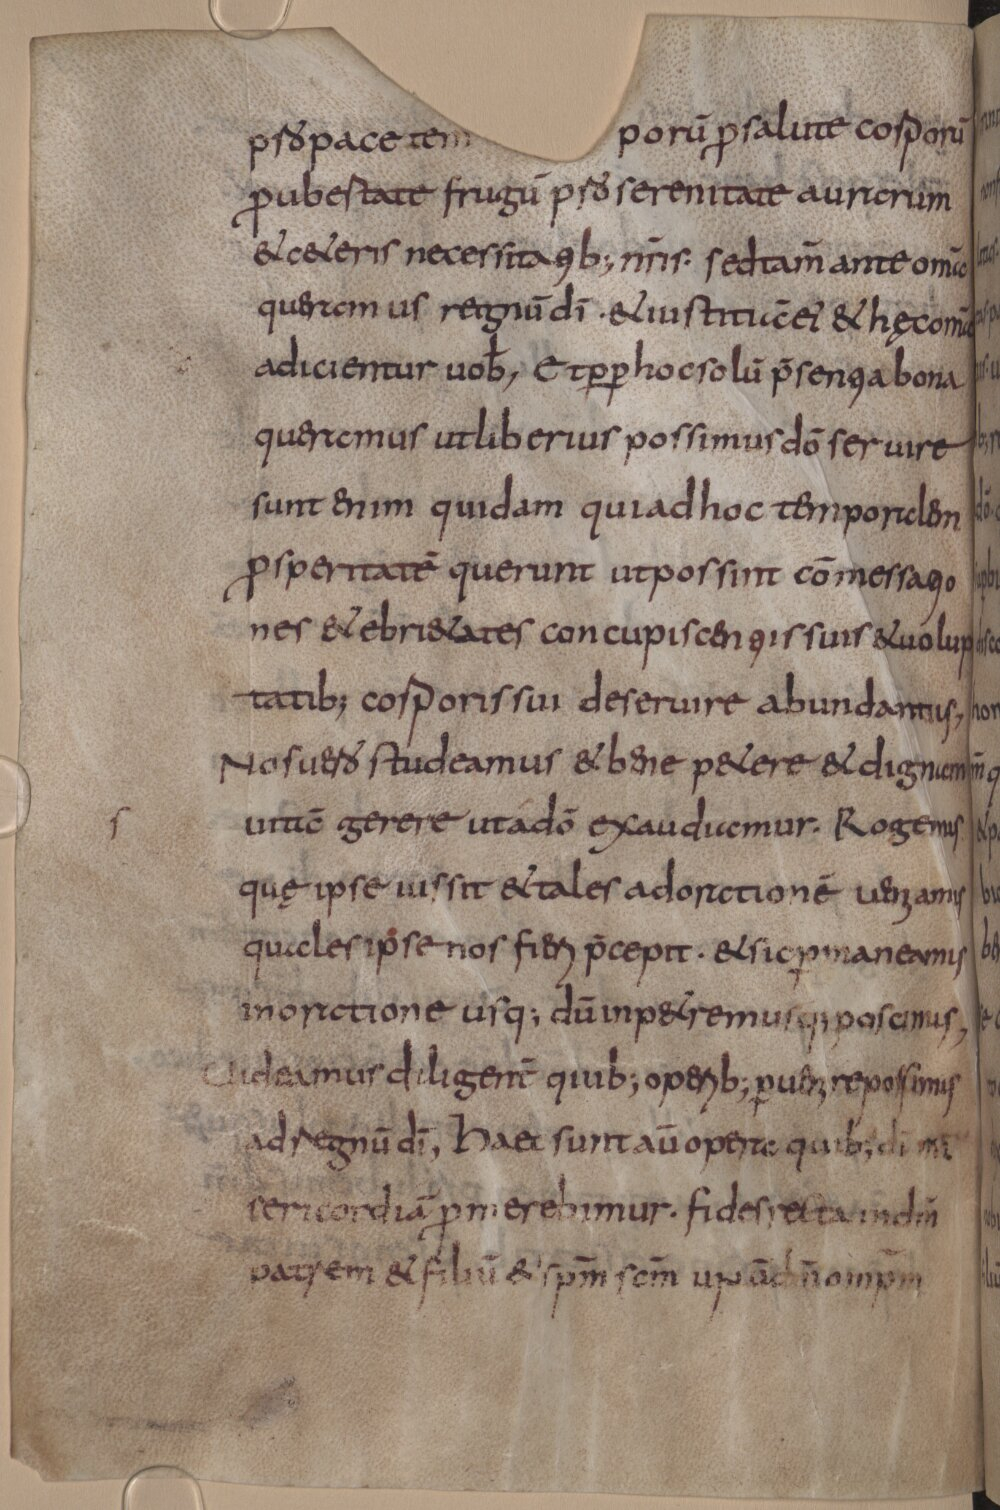 psoꝛ pace tem porū p̄ salute corporū
p̄ ubertate frugū p̄ soꝛ serenitate aurarum
& ceteris necessitatib; nr̄is. sed tam̄ ante om̄ia
queramus regnū dī. & iustitiā ei & hęc om̄ia
adicientur uob̄, Et ꝓp hoc solū p̄sentia bona
queramus ut liberius possimus dō seruire
sunt enim quidam qui ad hoc temporalem
p̄speritatē querunt ut possint cōmessatio
nes & ebrietates concupiscentiis suis & uolup
tatib; corporis sui deseruire abundantius,
Nos uero studeamus & bene petere & dignam
uitā gerere ut a dō exaudiamur. Rogemus
s
quę ipse iussit & tales ad orationē ueniamus
quales ipse nos fieri p̄cepit. & sic ꝑmaneamus
in oratione usq; dū inpetremus q; poscimus,
Uideamus diligent̄ quib; operib; ꝑuenire possimus
ad regnū dī, Haec sunt aū opera quib; dī mi
sericordiā ꝓmerebimur. fides recta in dm̄
patrem & filiū & sp̄m sc̄m unū dn̄m omp̄m